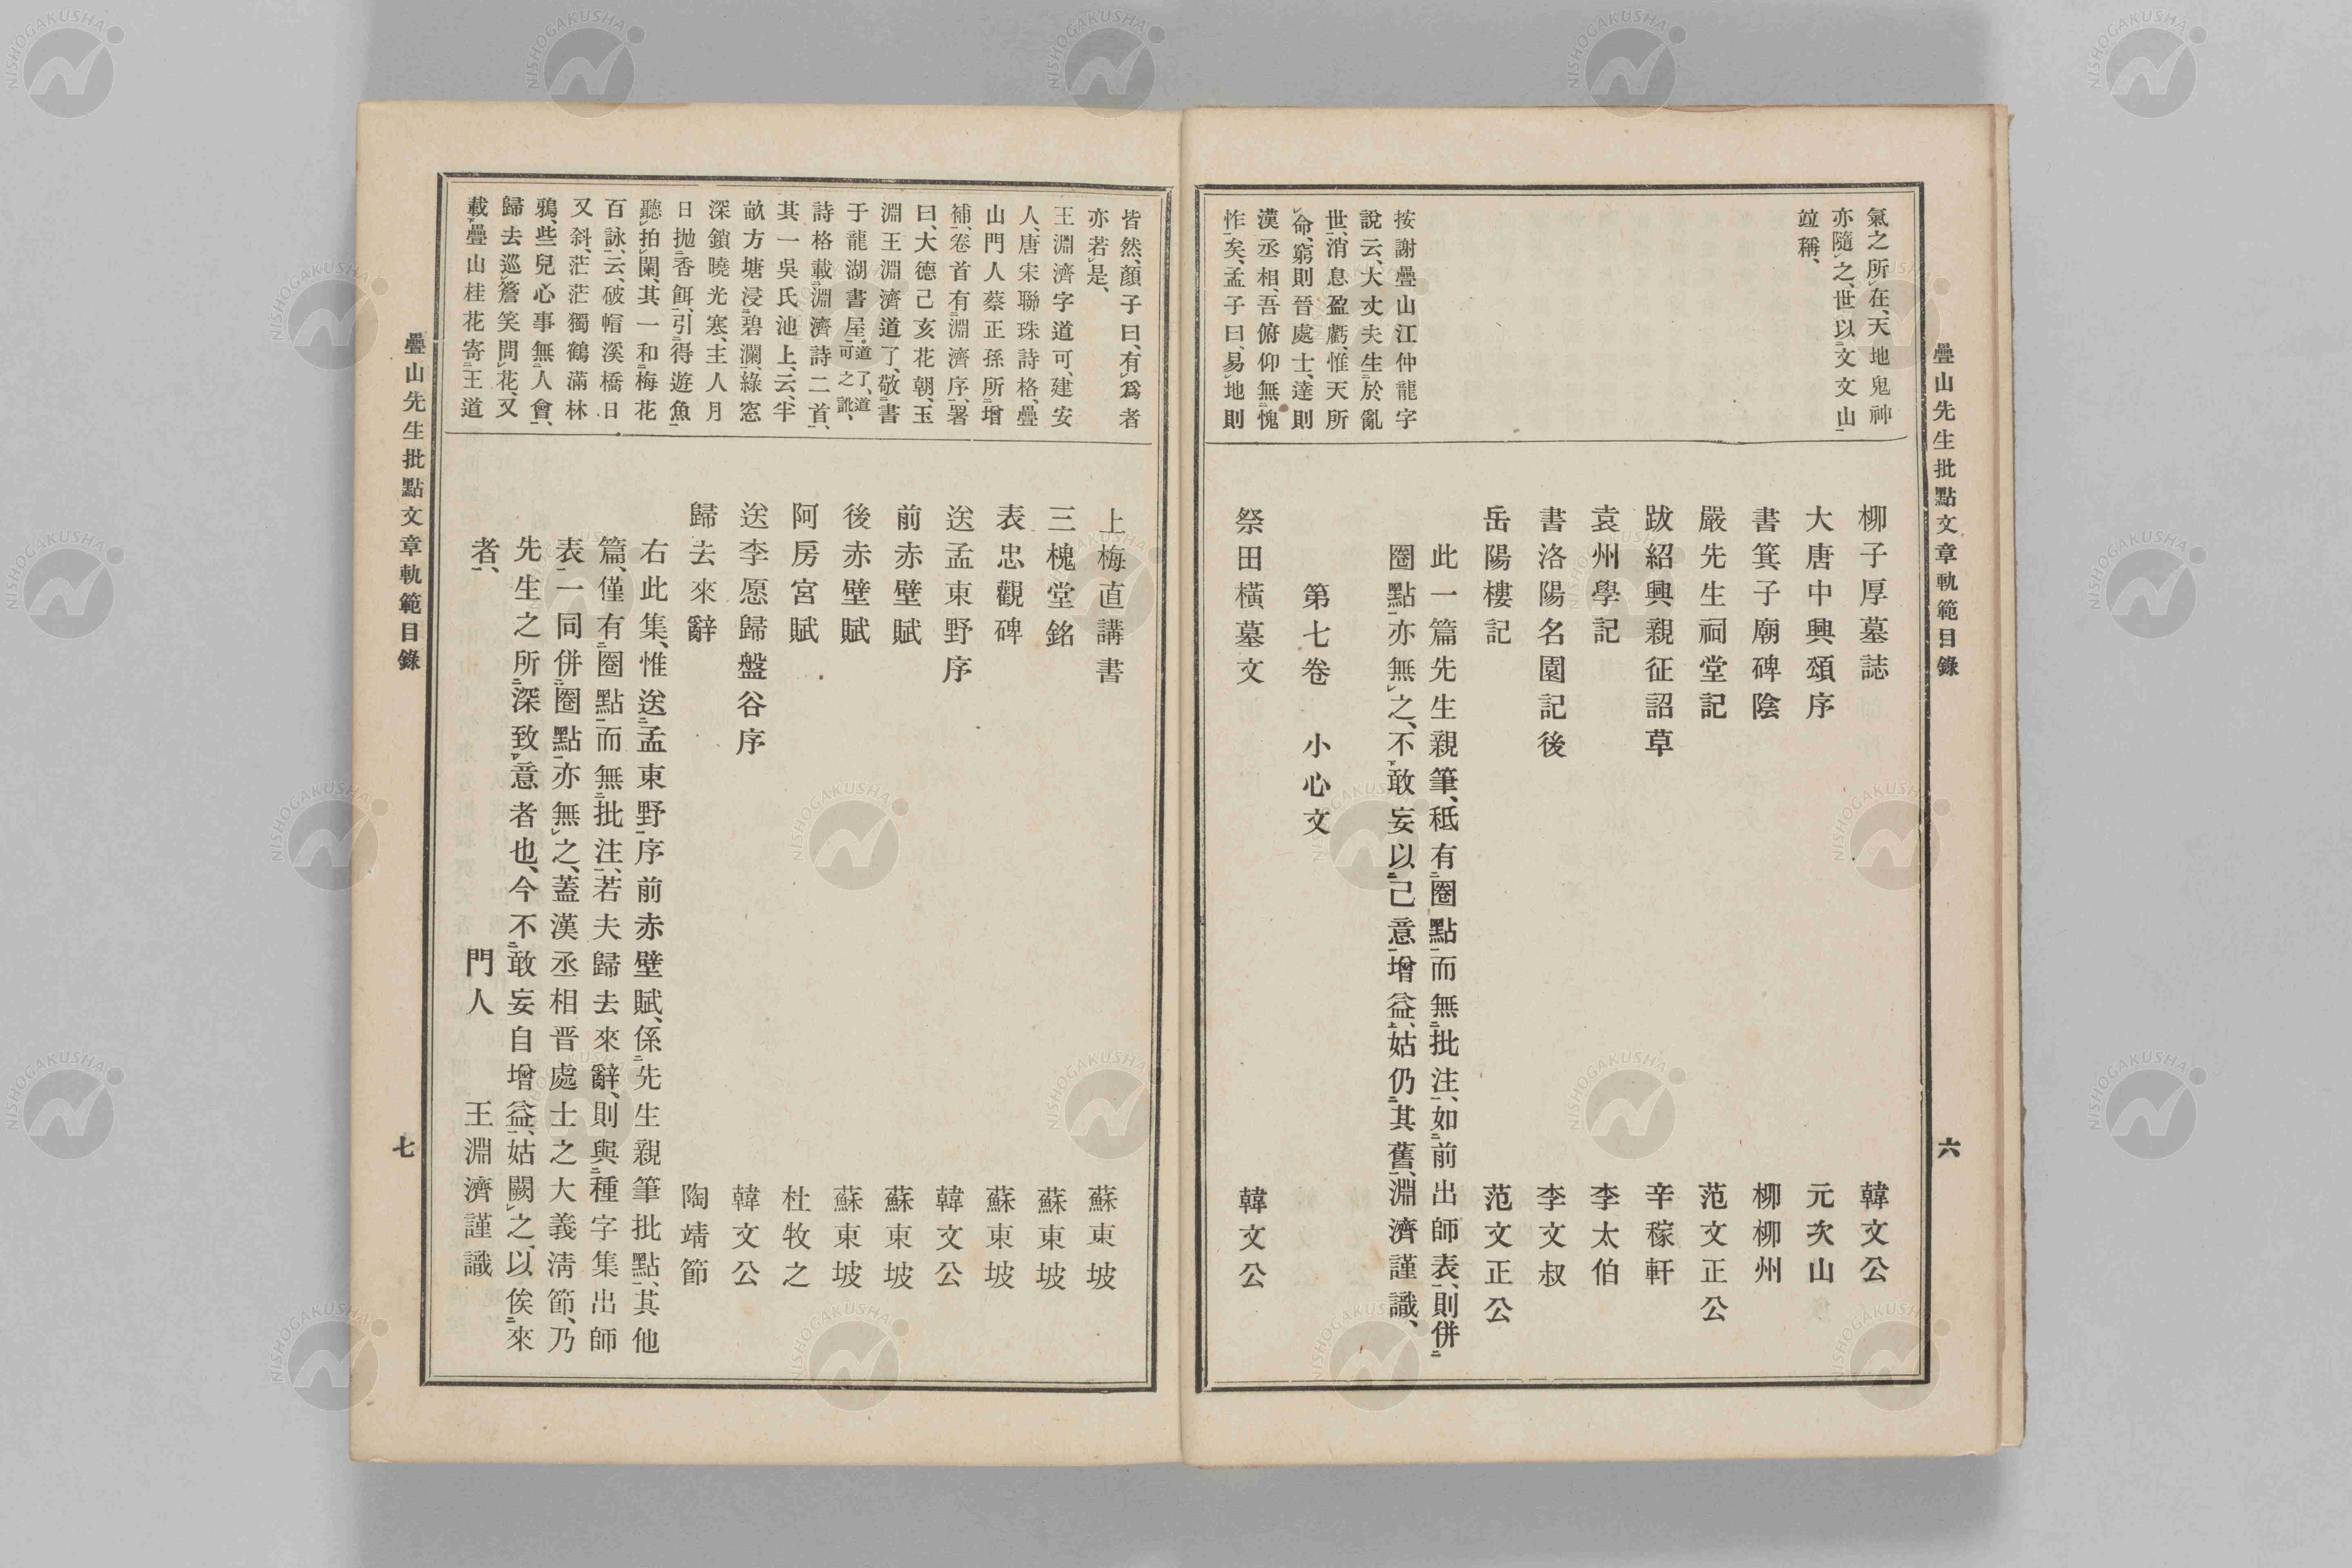 疊山先生批點文章軌範目錄
六
氣之所在、天地鬼神
亦隨之、世以文文山
竝稱、
按謝疊山江仲龍字
說云、大丈夫生於亂
世、消息盈虧、惟天所
命、窮則晉處士、達則
漢丞相、吾俯仰無愧
怍矣、孟子曰、易地則
柳子厚墓誌 韓文公
大唐中興頌序 元次山
書箕子廟碑陰 柳柳州
嚴先生祠堂記 范文正公
跋紹興親征詔草 辛稼軒
袁州學記 李太伯
書洛陽名園記後 李文叔
岳陽樓記 范文正公
此一篇先生親筆、秪有圈點而無批注、如前出師表、則併
圈點亦無之、不敢妄以己意增益、姑仍其舊、淵濟謹識、
第七卷 小心文
祭田橫墓文 韓文公
皆然、顏子曰、有爲者
亦若是、
王淵濟字道可、建安
人、唐宋聯珠詩格、疊
山門人蔡正孫所增
補、卷首有淵濟序、署
曰、大德己亥花朝、玉
淵王淵濟道了、敬書
于龍湖書屋。道了、道可之訛、
詩格載淵濟詩二首、
其一吳氏池上云、半
畝方塘浸碧瀾、綠窓
深鎖曉光寒、主人月
日拋香餌、引得遊魚
聽拍闌、其一和梅花
百詠云、破帽溪橋日
又斜、茫茫獨鶴滿林
鴉、些兒心事無人會、
歸去巡簷笑問花、又
載疊山桂花寄王道
上梅直講書 蘇東坡
三槐堂銘 蘇東坡
表忠觀碑 蘇東坡
送孟東野序 韓文公
前赤壁賦 蘇東坡
後赤壁賦 蘇東坡
阿房宮賦 杜牧之
送李愿歸盤谷序 韓文公
歸去來辭 陶靖節
右此集、惟送孟東野序前赤壁賦、係先生親筆批點、其他
篇、僅有圈點而無批注、若夫歸去來辭、則與種字集出師
表一同併圈點亦無之、蓋漢丞相晉處士之大義清節、乃
先生之所深致意者也、今不敢妄自增益、姑闕之、以俟來
者、 門人 王淵濟謹識
疊山先生批點文章軌範目錄
七